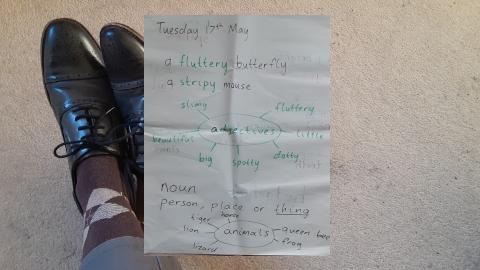 Tuesday 17th May
a fluttery butterfly
a stripy mouse
slimy
fluttery
adjectives
beautiful
little
big
spotty
dotty
noun
person, place or thing
tiger
horse
lion
animals
queen bee
lizard
frog